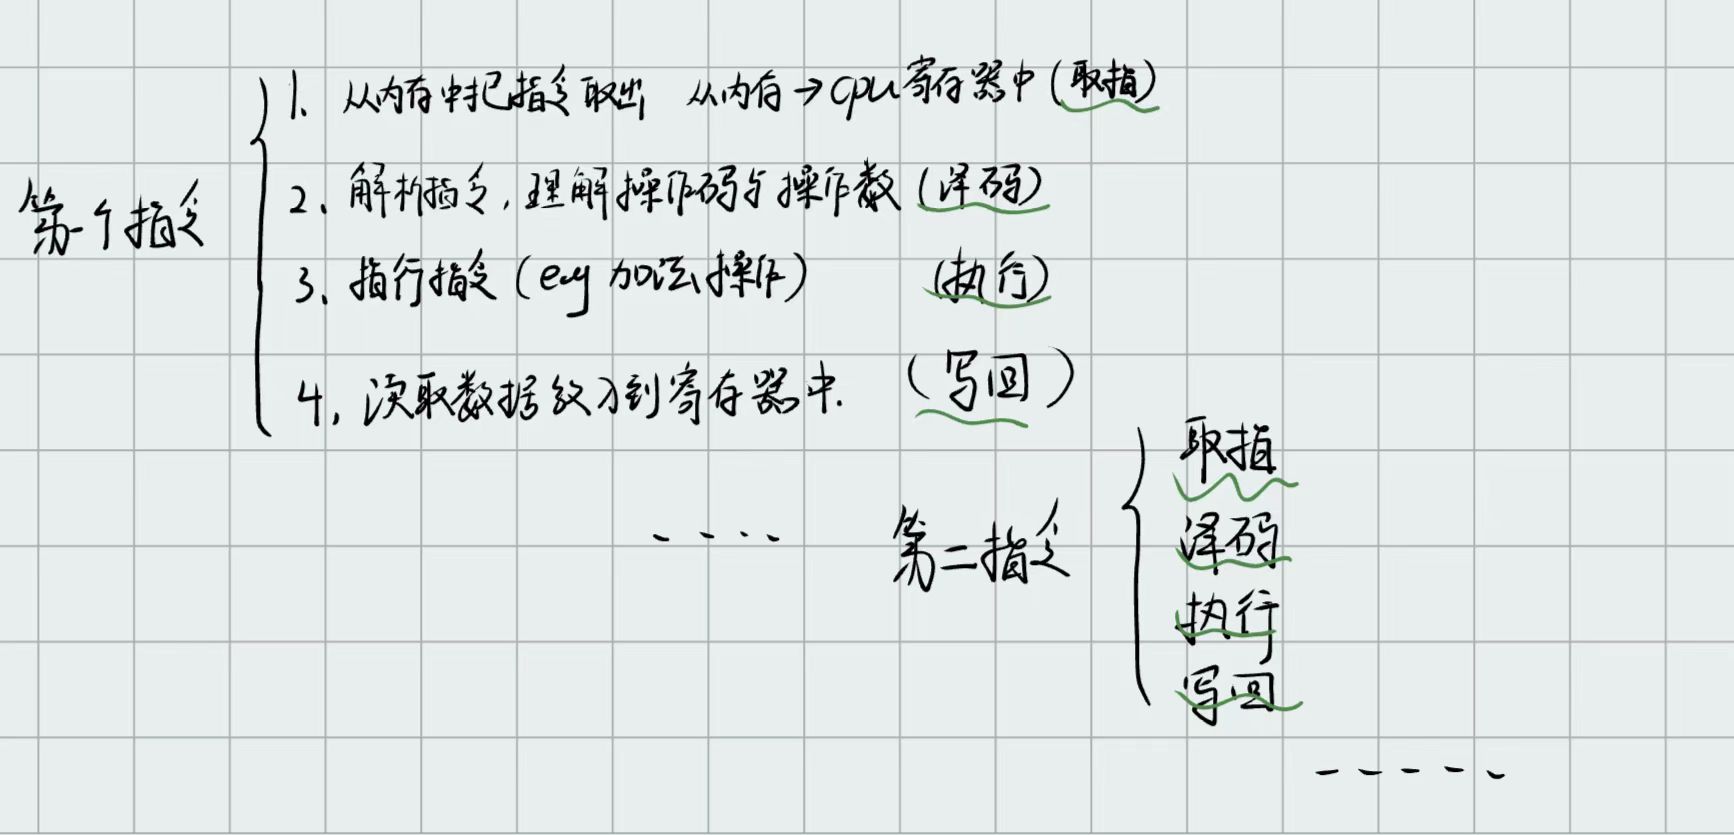 第一个指令
1、从内存中把指令取出 从内存→cpu寄存器中(取指)
2、解析指令,理解操作码与操作数(译码)
3、指行指令(eg 加法操作) (执行)
4、读取数据放入到寄存器中. (写回)
....
第二指令
取指
译码
执行
写回
-----